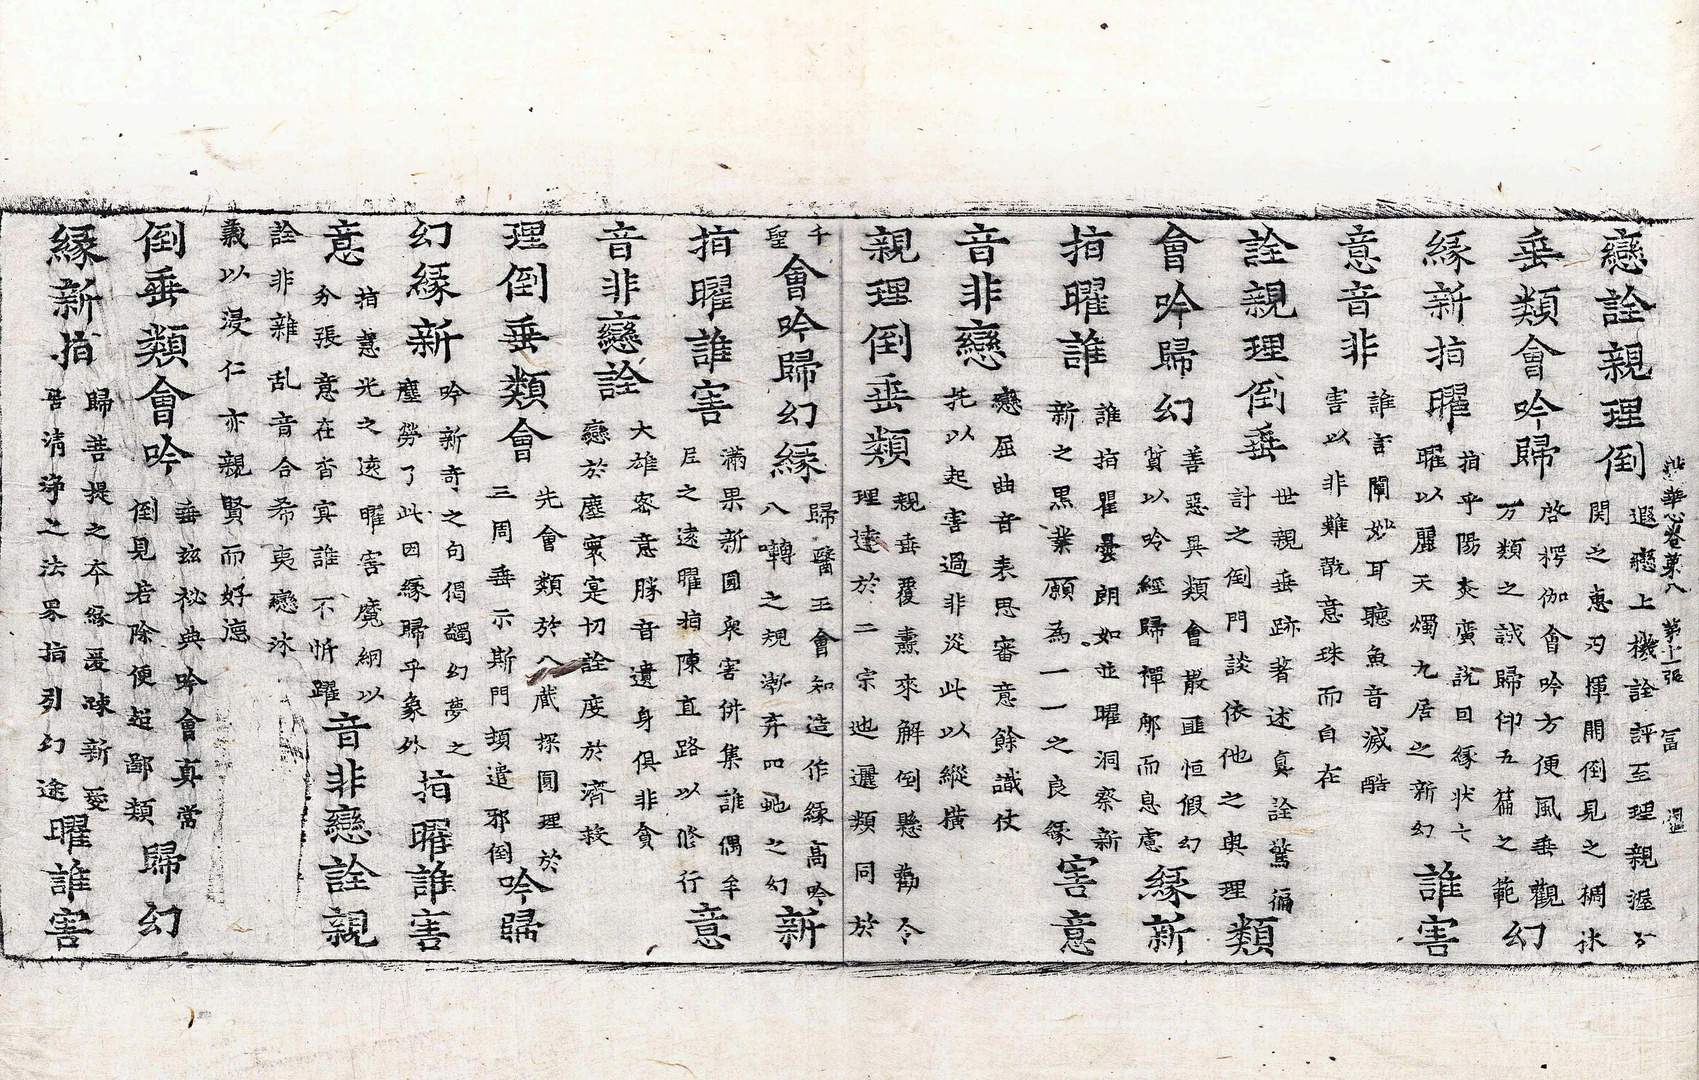 蓮華心卷第八　第十一張　冨
戀詮親理倒
遐戀上機詮評至理親渥分
関之惠刃揮開倒見之稠林
垂類會吟歸
啓楞伽會吟方便風垂觀
万類之誠歸仰五篇之範
幻
緣新指曜
指乎陽炎實說回緣状亡
曜以麗天燭九居之新幻
誰害
意音非
誰言闡妙耳聽魚音滅酷
害以非難翫意珠而自在
詮親理倒垂
世親垂跡著述真詮驚徧
計之倒門談依他之輿理
類
會吟歸幻
善惡異類會散匪恒假幻
質以吟經歸禪那而息慮
緣新
指曜誰
誰指瞿曇朗如並曜洞察新
新之黒業願為一一之良緣
害意
音非戀
戀屈曲音表思審意餘識仗
托以起害過非從此以縱横
親理倒垂類
親垂覆燾來解倒懸勸令
理達於二宗迆邐類同於
千
聖
會吟歸幻緣
歸醫王會知造作緣高吟
八囀之規漸弃四虵之幻
新
指曜誰害
滿果新圓衆害併集誰偶牟
尼之遠曜指陳直路以修行
意
音非戀詮
大雄密意勝音遺身俱非貪
戀於塵寰寔切詮度於濟救
理倒垂類會
先會類於八藏探圓理於
三周垂示斯門頓遣邪倒
吟歸
幻緣新
吟新奇之句偈蠲幻夢之
塵勞了此因緣歸乎象外
指曜誰害
意
指慧光之遠曜害魔網以
分張意在杳冥誰不忻躍
音非戀詮親
詮非雜乱音合希夷戀沐
義以浸仁亦親賢而好德
倒垂類會吟
垂兹祕典吟會真常
倒見若除便超鄙類
歸幻
緣新指
歸善提之本緣憂疎新愛
居清浄之法界指引幻途
曜誰害